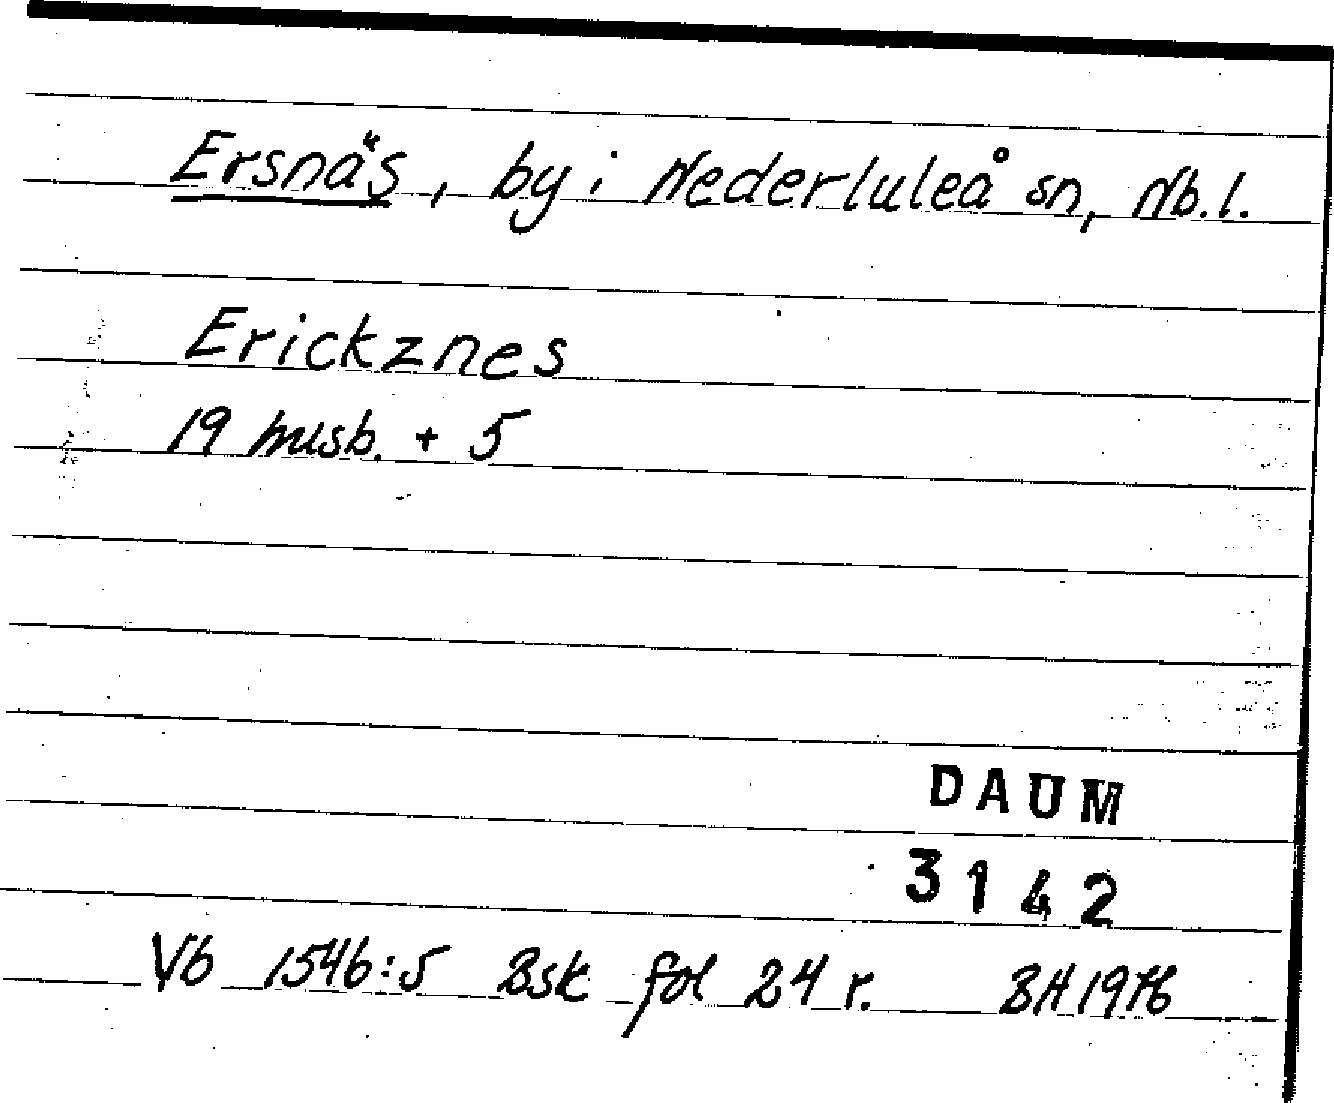 Ersnäs, by i Nederluleå sn, Nb.l.
Erickznes
19 husb. + 5
DAUM
3142
Vb 1546:5 Bsk fol 24 r. BH 1976